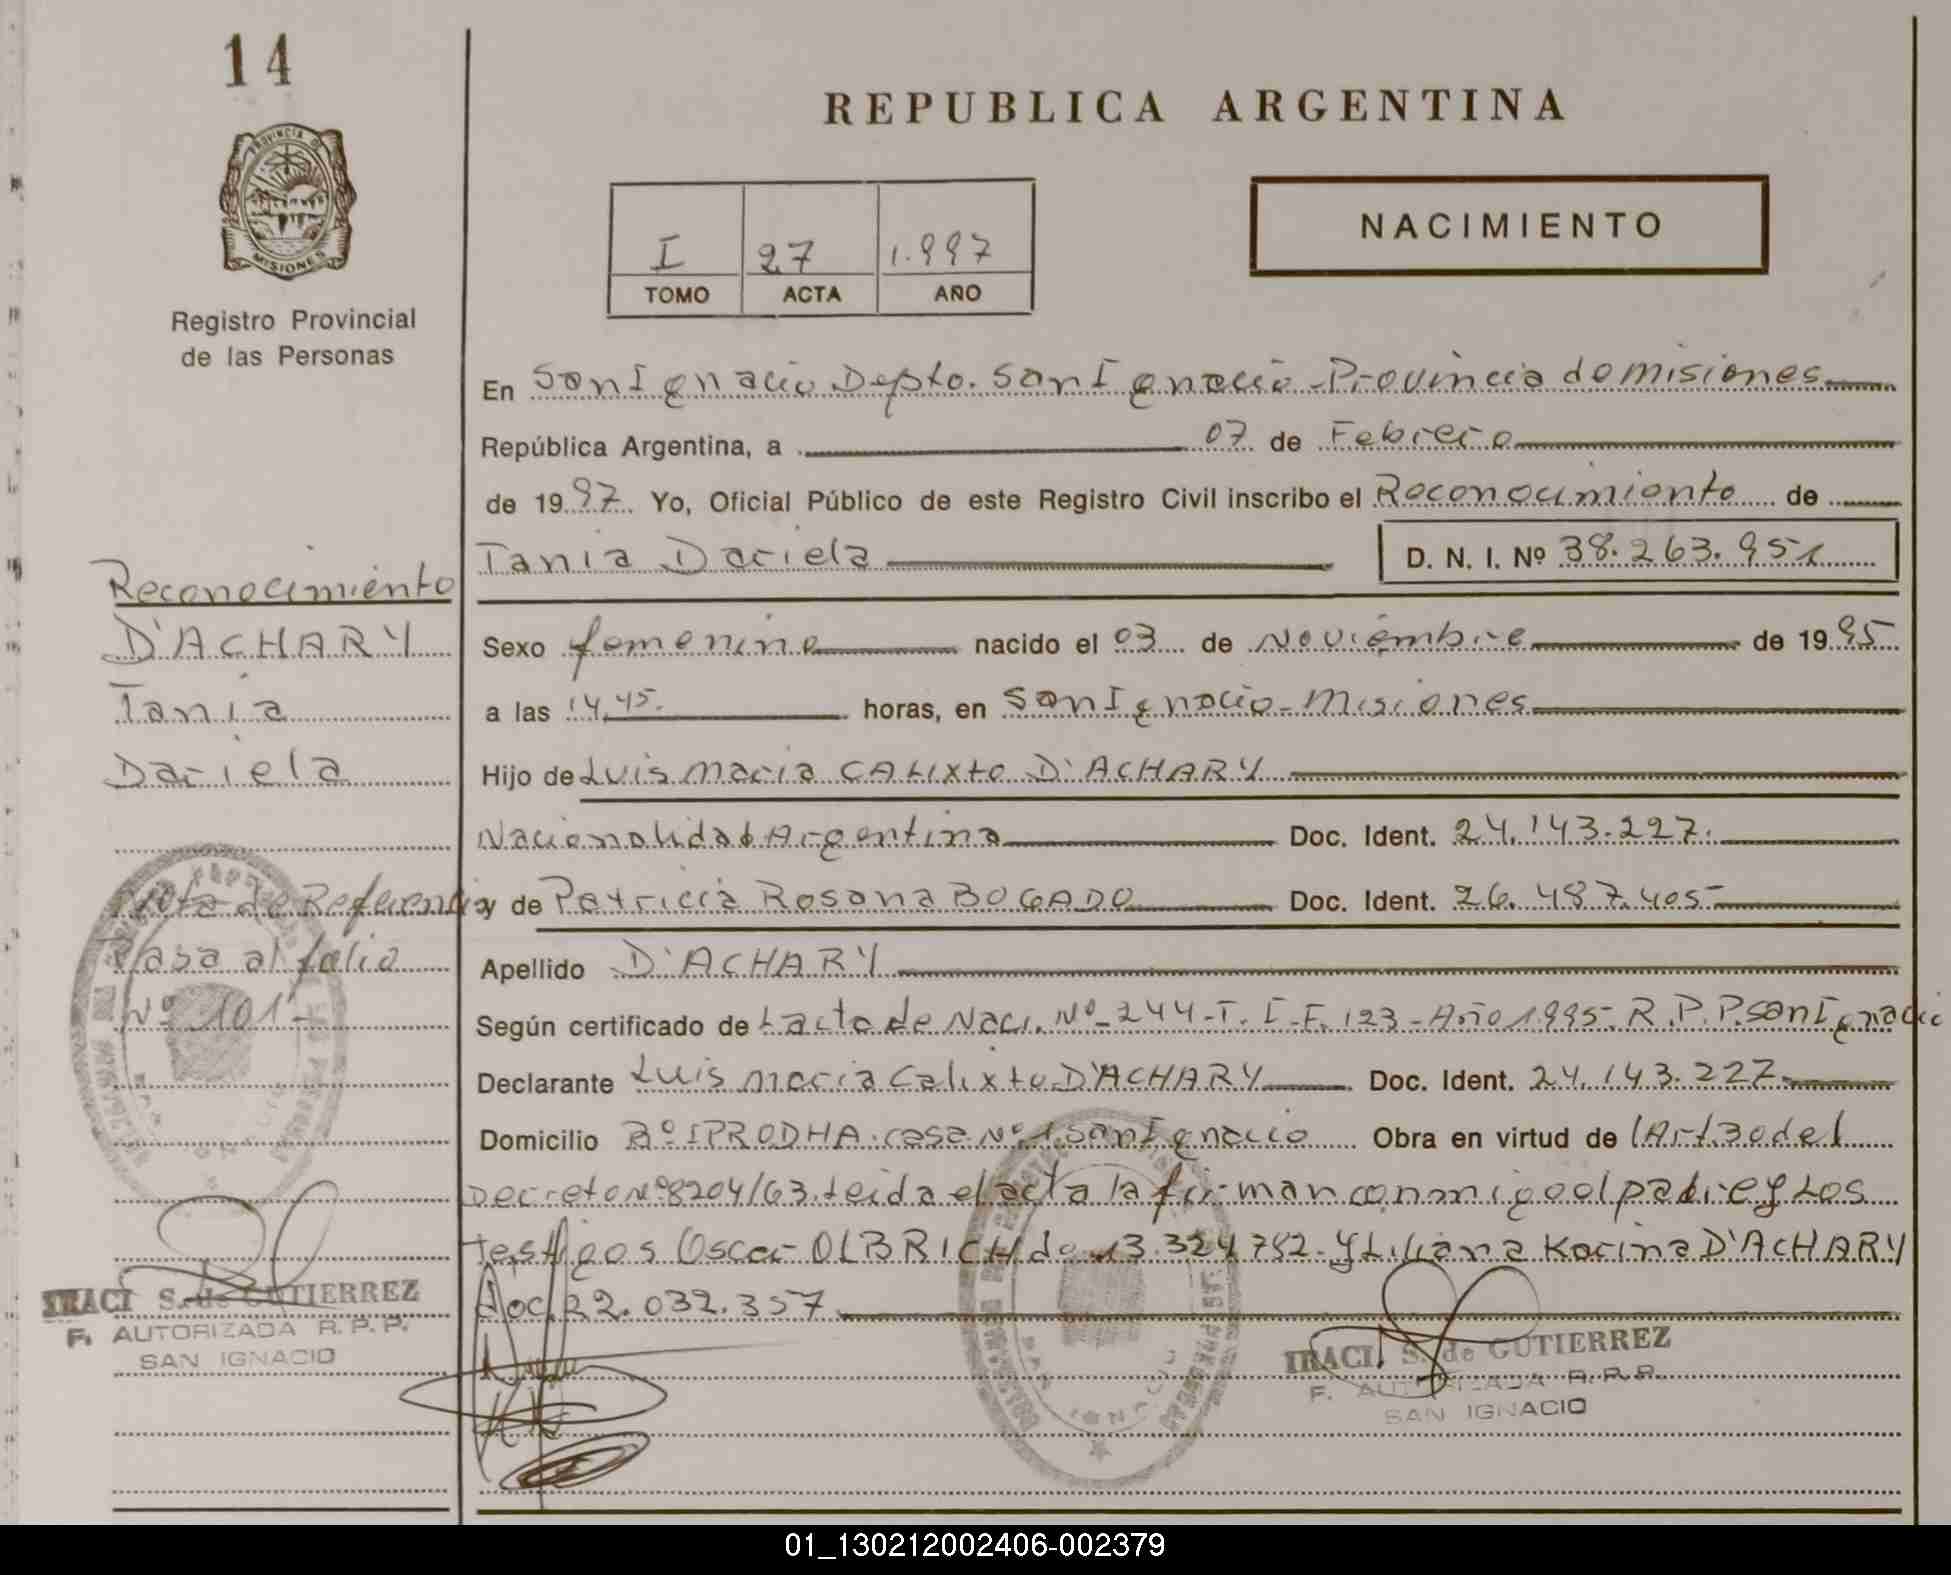 14
REPUBLICA ARGENTINA
PROVINCIA D
MISIONES
I 27 1.997
TOMO ACTA AÑO
NACIMIENTO
Registro Provincial
de las Personas
En San Ignacio Depto. San Ignacio - Provincia de misiones
República Argentina, a 07 de Febrero
de 1997 Yo, Oficial Público de este Registro Civil inscribo el Reconocimiento de
Tania Dariela D. N. I. Nº 38.263.951
Reconocimiento
D'ACHARY
Tania
Dariela
Sexo femenino nacido el 03 de Noviembre de 1995
a las 14,45. horas, en San Ignacio - Misiones
Hijo de Luis Maria CALIXTO D'ACHARY
Nacionalidad Argentina Doc. Ident. 24.143.227.
y de Patricia Rosana BOGADO Doc. Ident. 26.487.405
Nota de Referencia
Pasa al folio
Nº 101
Apellido D'ACHARY
Según certificado de acta de Naci. Nº 244 - T. I - F. 123 - Año 1995 - R.P.P. San Ignacio
Declarante Luis Maria Calixto D'ACHARY Doc. Ident. 24.143.227
Domicilio Bº IPRODHA casa Nº 1 San Ignacio Obra en virtud de Art 30 del
Decreto Nº 8204/63. leida el acta la firman conmigo el padre y Los
testigos Oscar OLBRICH do 13.324.782 - y Liliana Karina D'ACHARY
doc. 22.032.357
IRACI S. de GUTIERREZ
F. AUTORIZADA R. P. P.
SAN IGNACIO
IRACI S. de GUTIERREZ
F. AUTORIZADA R. P. P.
SAN IGNACIO
01_130212002406-002379